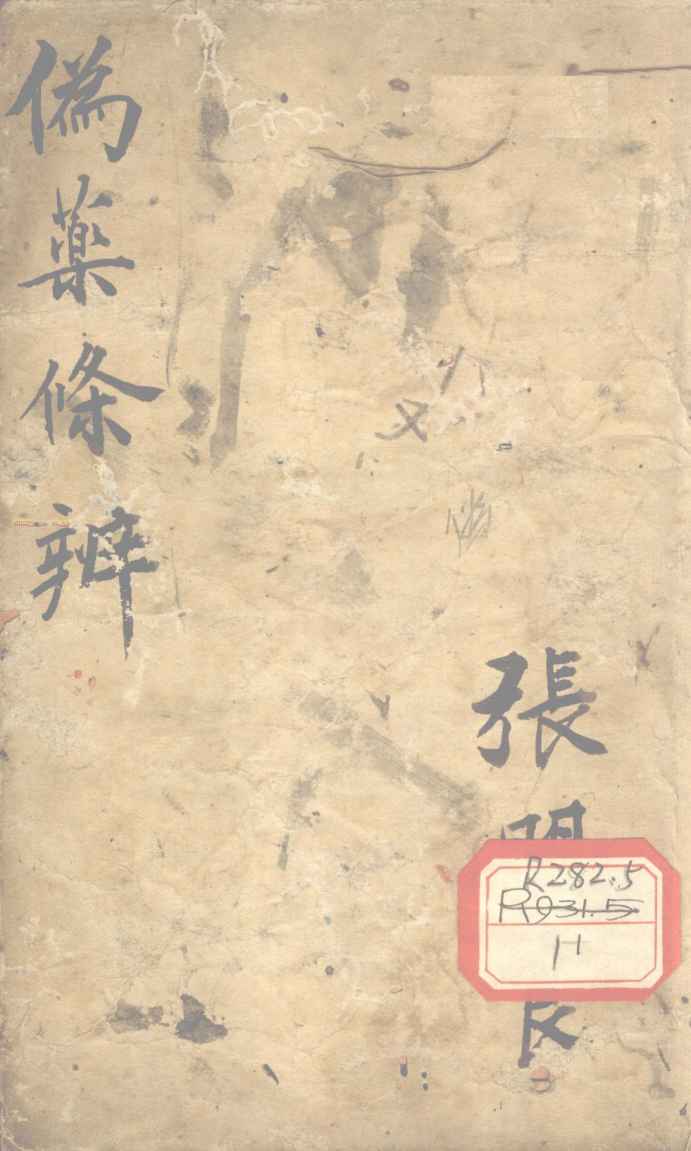 偽藥條辨
張
R282.5
R931.5
H